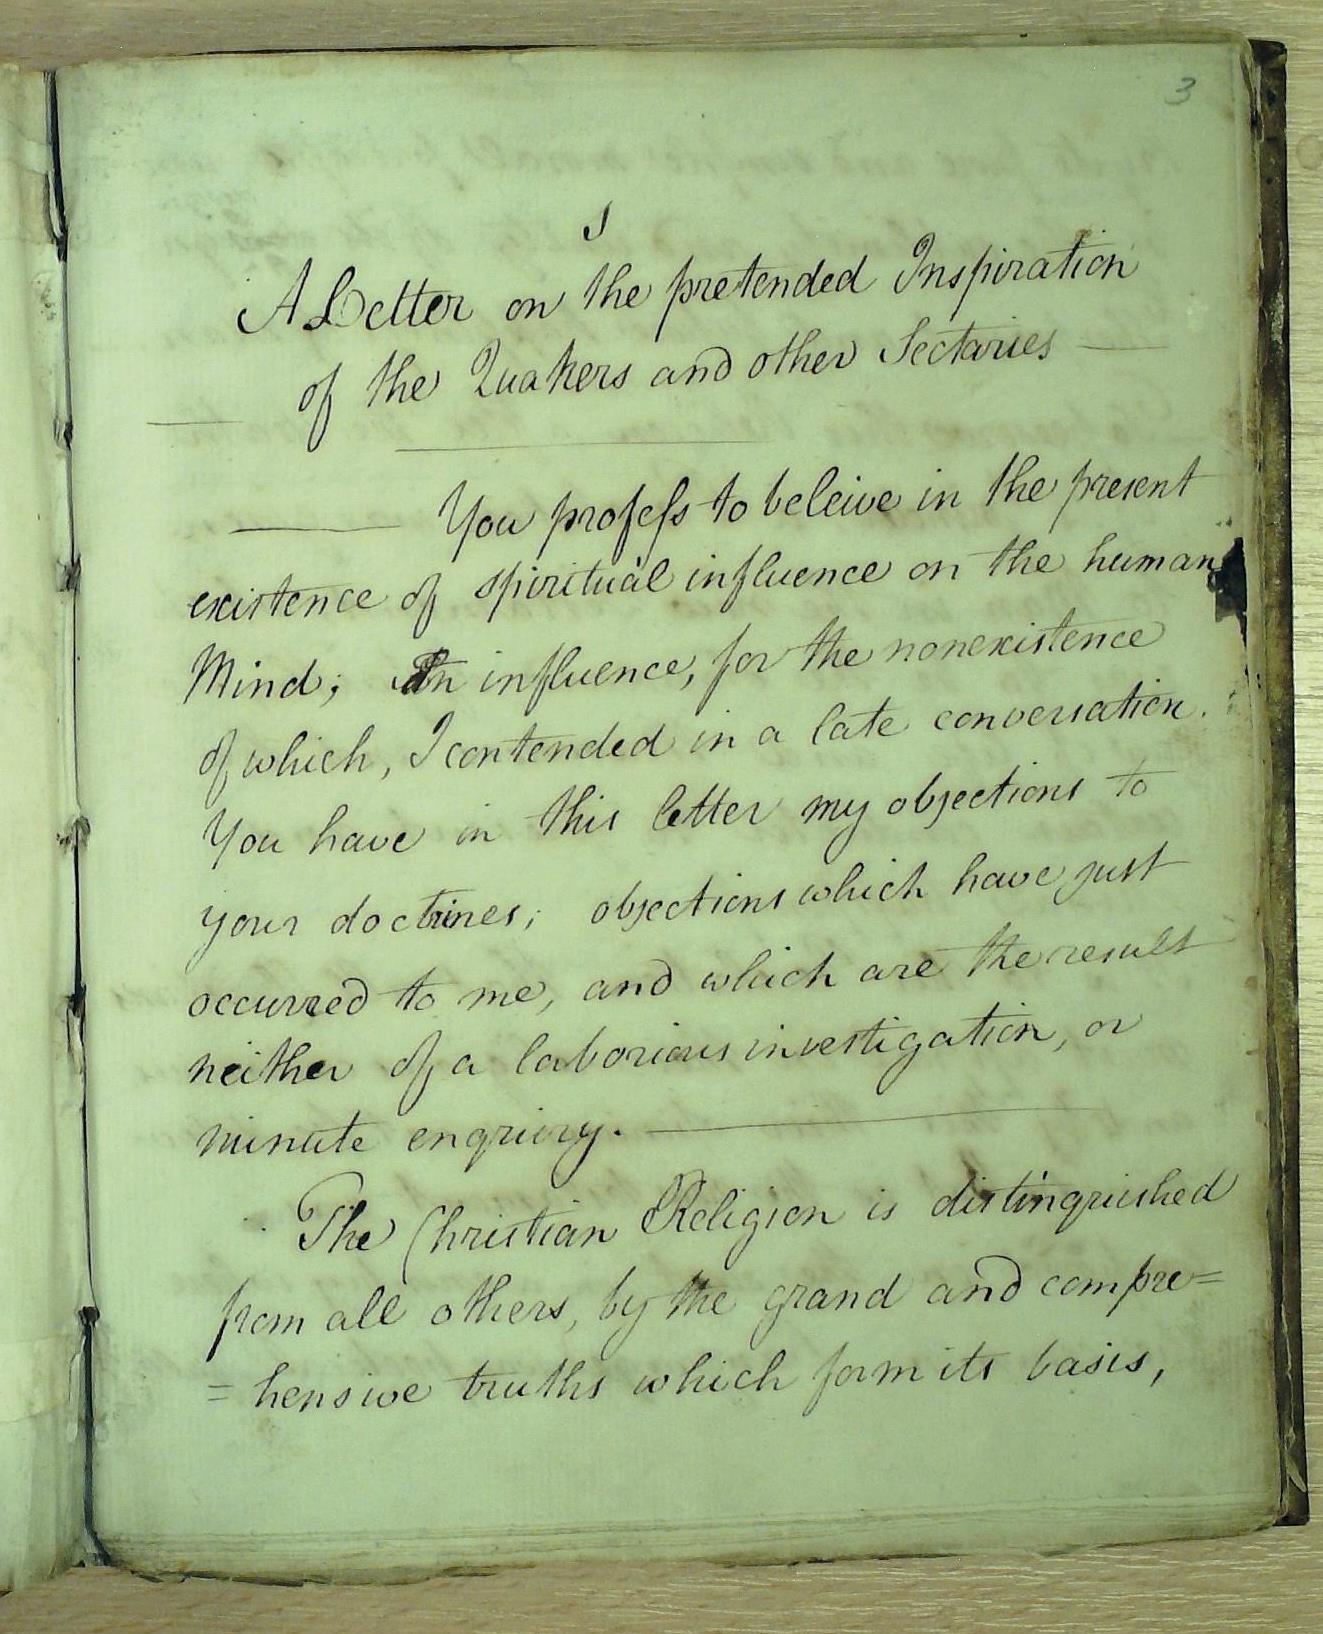 3
1
A Letter on the pretended Inspiration
of the Quakers and other Sectaries —
— You profess to beleive in the present
existence of spiritual influence on the human
Mind; An influence, for the nonexistence
of which, I contended in a late conversation.
You have in this letter my objections to
your doctrines; objections which have just
occurred to me, and which are the result
neither of a laborious investigation, or
minute enquiry. —
The Christian Religion is distinguished
from all others, by the grand and compre=
=hensive truths which form its basis,